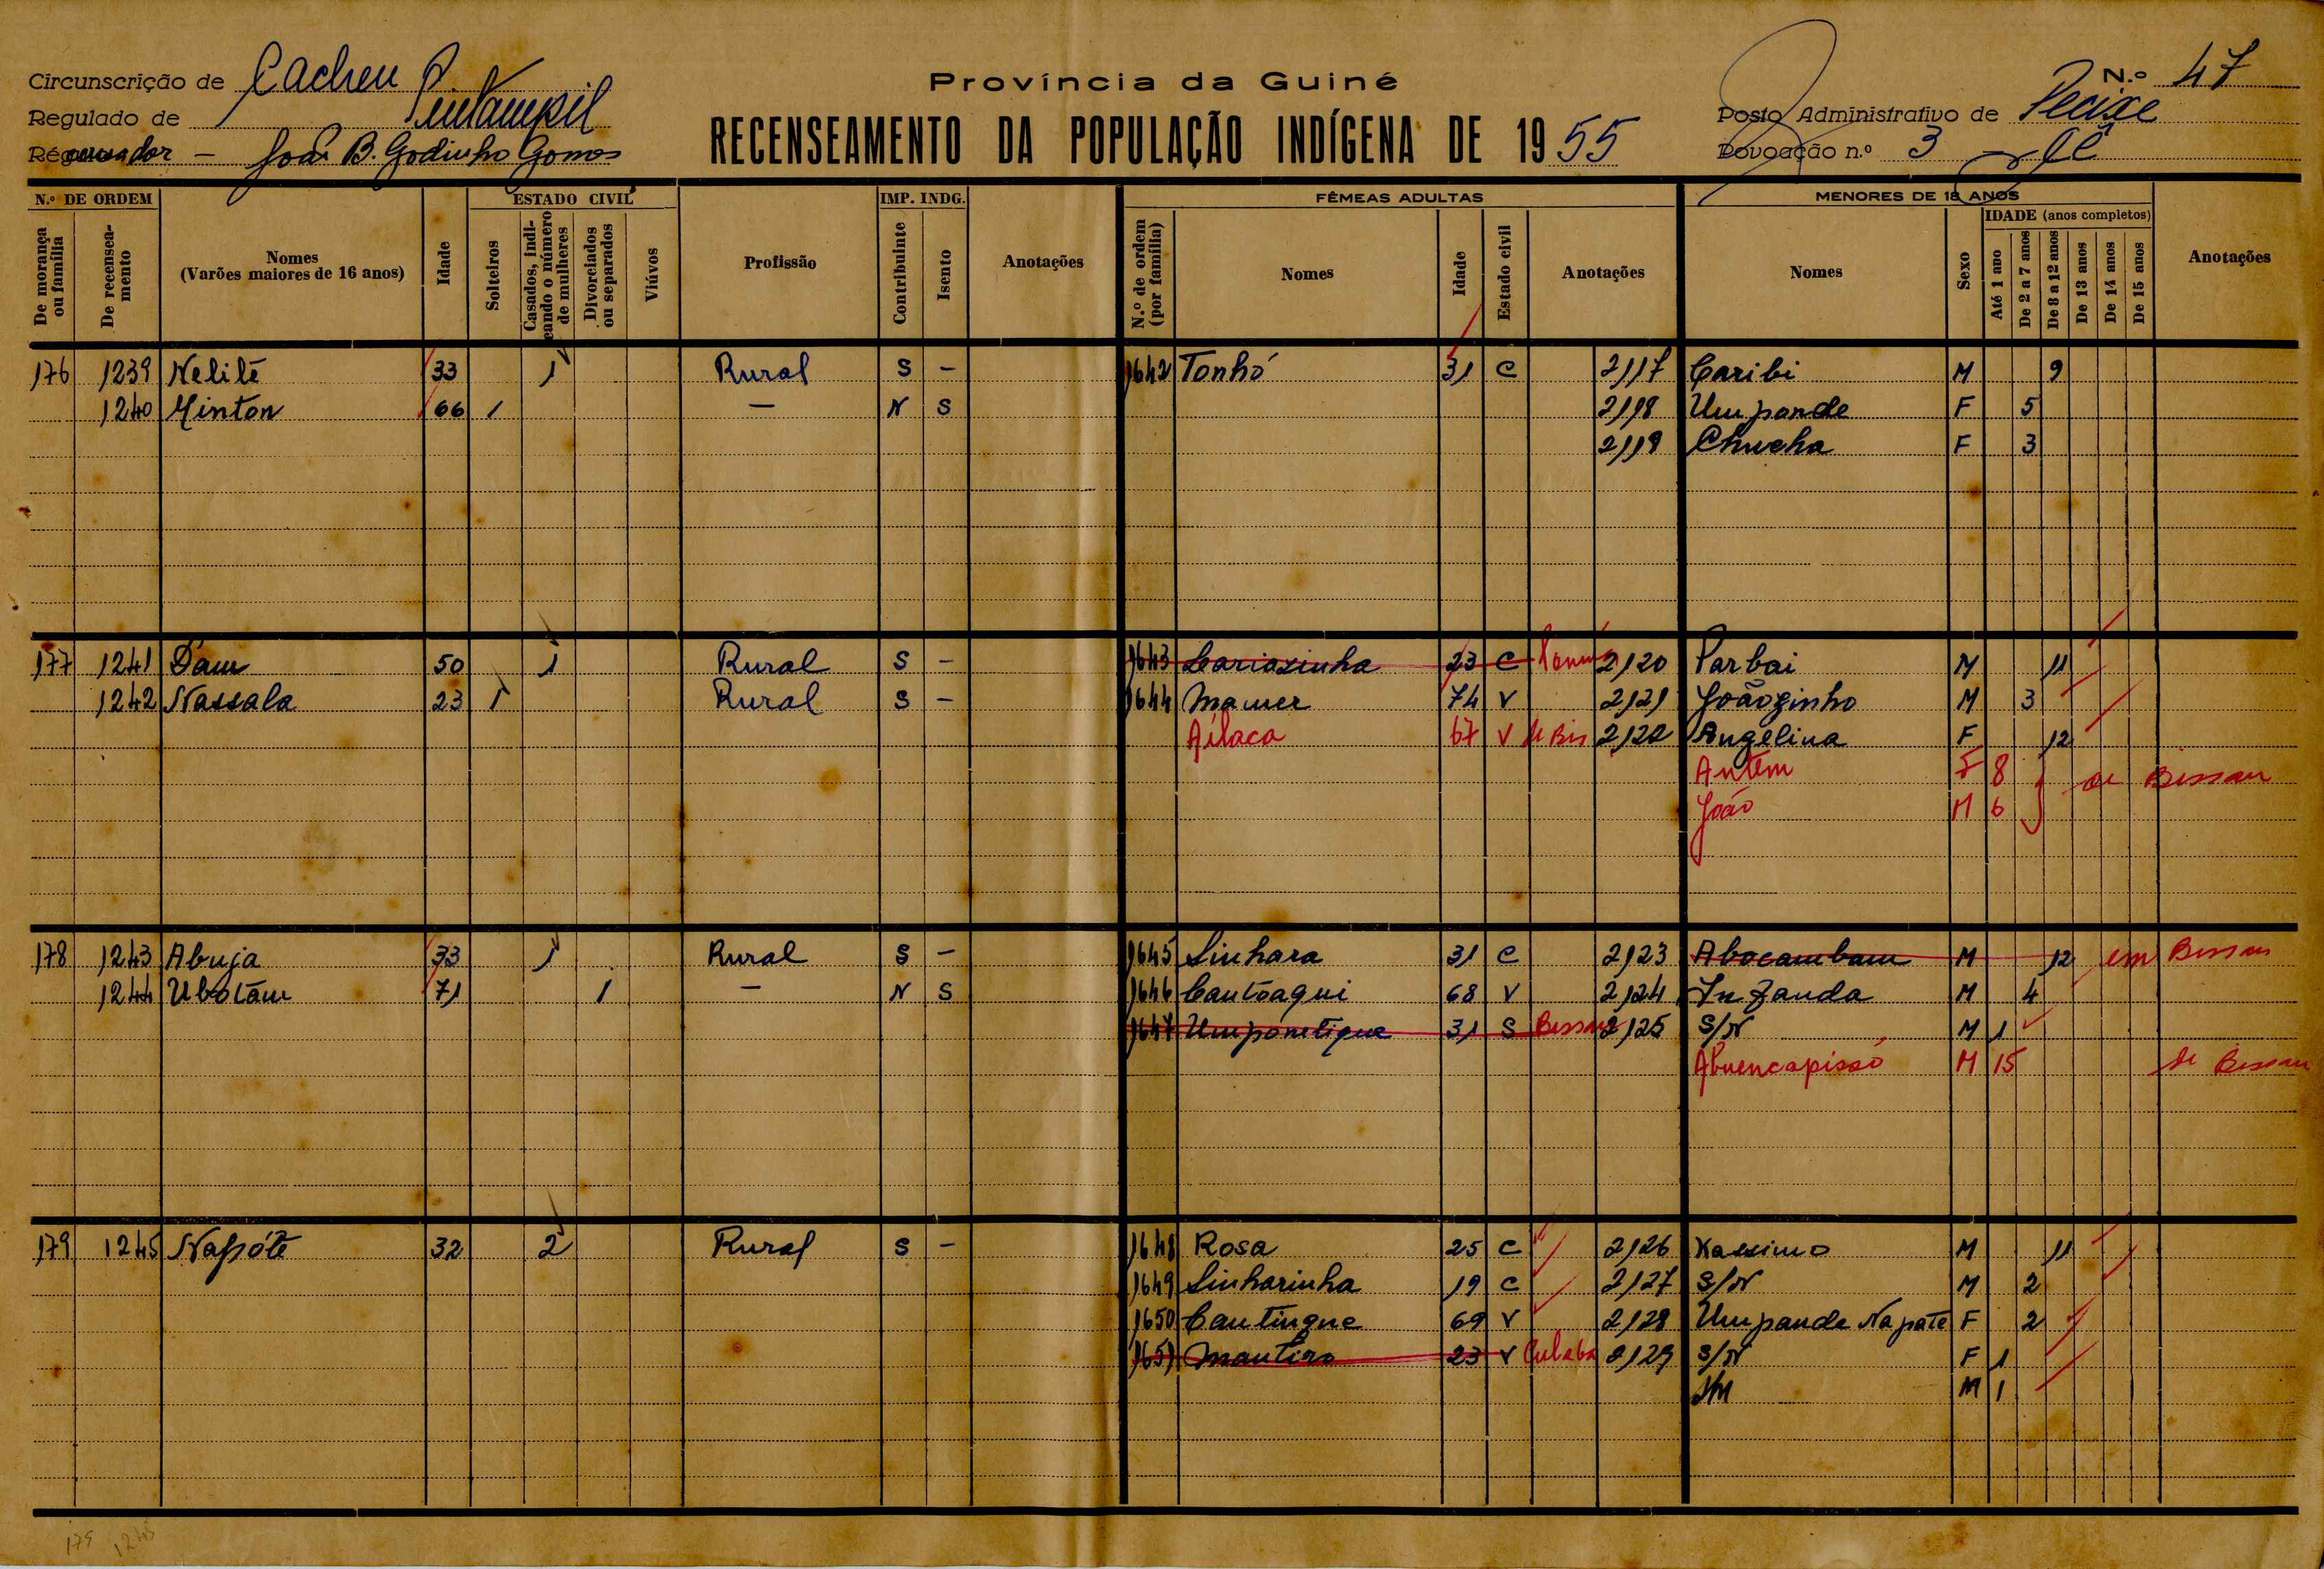 Circunscrição de Cacheu
Regulado de Pintampil
Recenseador - João B. Godinho Gomes
Província da Guiné
RECENSEAMENTO DA POPULAÇÃO INDÍGENA DE 1955
N.º 47
Posto Administrativo de Pecixe
Povoação n.º 3
N.º DE ORDEM
De morança ou família
De recenseamento
Nomes (Varões maiores de 16 anos)
Idade
ESTADO CIVIL
Solteiros
Casados, indicando o número de mulheres
Divorciados ou separados
Viúvos
Profissão
IMP. INDG.
Contribuinte
Isento
Anotações
FÊMEAS ADULTAS
N.º de ordem (por família)
Nomes
Idade
Estado civil
Anotações
MENORES DE 18 ANOS
Nomes
Sexo
IDADE (anos completos)
Até 1 ano
De 2 a 7 anos
De 8 a 12 anos
De 13 anos
De 14 anos
De 15 anos
Anotações
176 1239 Nelitê 33 1 Rural S - 1642 Tonhó 31 C 2117 Caribi M 9
1240 Minton 66 1 - N S 2118 Umpande F 5
2119 Chucha F 3
177 1241 Dam 50 1 Rural S - 1643 Cariasinha 23 C 2120 Parbai M 11
1242 Nassala 23 1 Rural S - 1644 Mamer 74 V 2121 Joãozinho M 3
Ailaca 67 V de Bis 2122 Angelina F 12
Antem F 8 de Bissau
João M 6
178 1243 Abuja 33 1 Rural S - 1645 Sinhara 31 C 2123 Abocambam M 12 em Bissau
1244 Ubotam 71 1 - N S 1646 Cantoaqui 68 V 2124 In Zanda M 4
1647 Umponetique 31 S Bissau 2125 S/N M 1
Abuencapissó M 15 de Bissau
179 1245 Napóte 32 2 Rural S - 1648 Rosa 25 C 2126 Kassimo M 11
1649 Sinharinha 19 C 2127 S/N M 2
1650 Cantingue 69 V 2128 Umpande Napate F 2
1651 Mantiro 23 V Culaba 2129 S/N F 1
M 1
179 1245